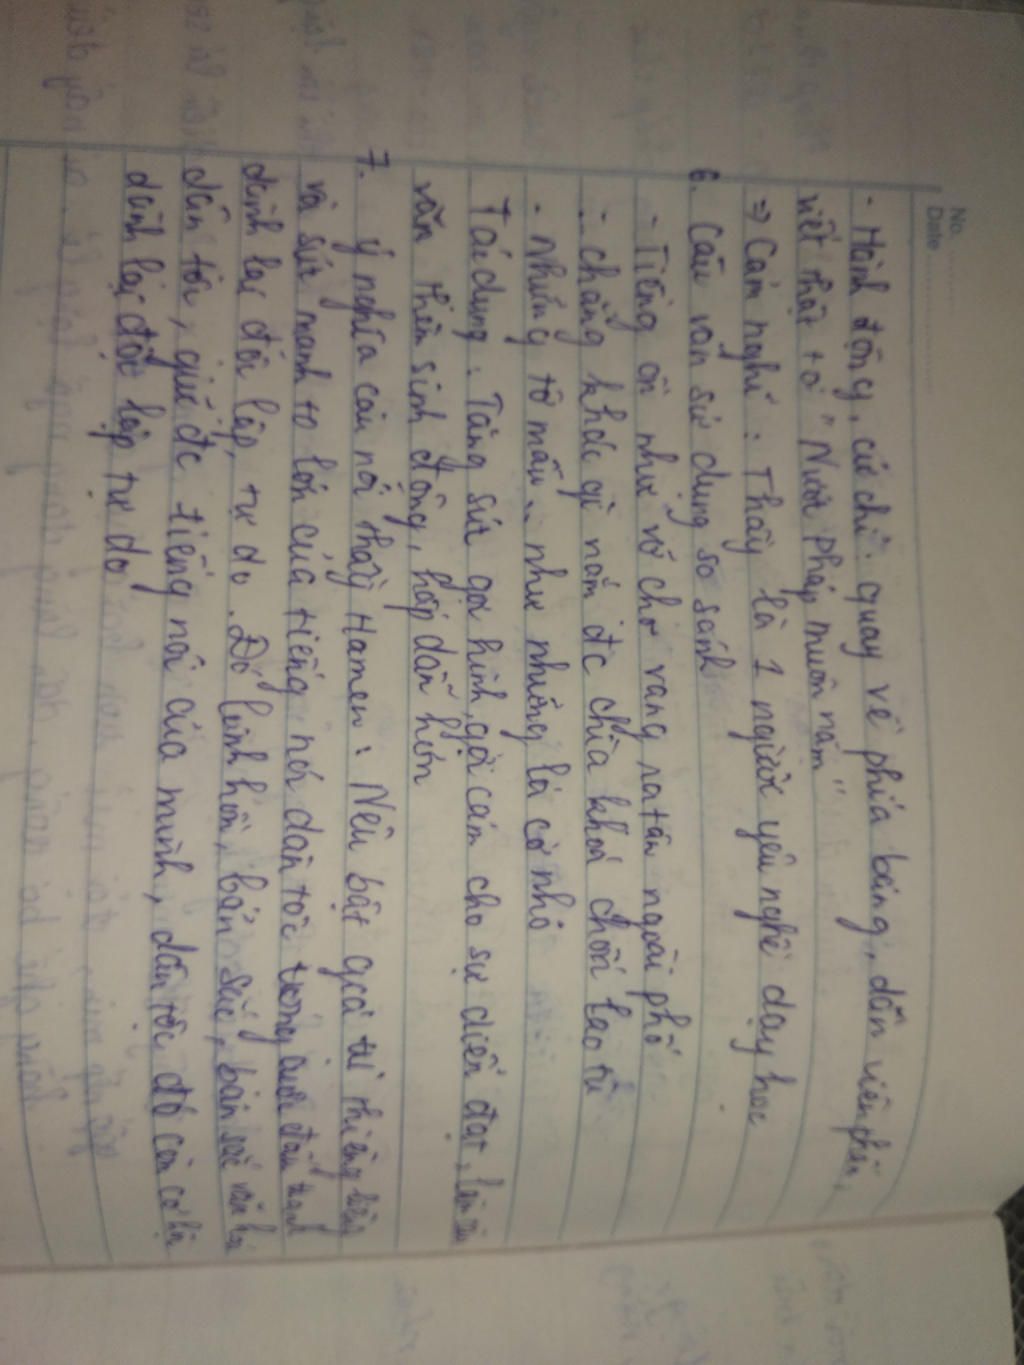 No.
Date
- Hành động, cử chỉ: quay về phía bảng, dằn viên phấn,
viết thật to "Nước Pháp muôn năm"
=> Cảm nghĩ: Thầy là 1 người yêu nghề dạy học
6. Câu văn sử dụng so sánh
- Tiếng ồn như vỡ chợ vang ra tận ngoài phố
- chẳng khác gì nắm đc chìa khoá chốn lao tù
- những tờ mẫu... như những lá cờ nhỏ
Tác dụng: Tăng sức gợi hình, gợi cảm cho sự diễn đạt, làm
văn thêm sinh động, hấp dẫn hơn
7. Ý nghĩa câu nói thầy Hamen: Nêu bật giá trị thiêng liêng
và sức mạnh to lớn của tiếng nói dân tộc trong cuộc đấu tranh
dành lại độc lập, tự do. Đó linh hồn, bản sắc, bản sắc văn hoá
dân tộc, giữ đc tiếng nói của mình, dân tộc đó còn cơ hội
dành lại độc lập tự do